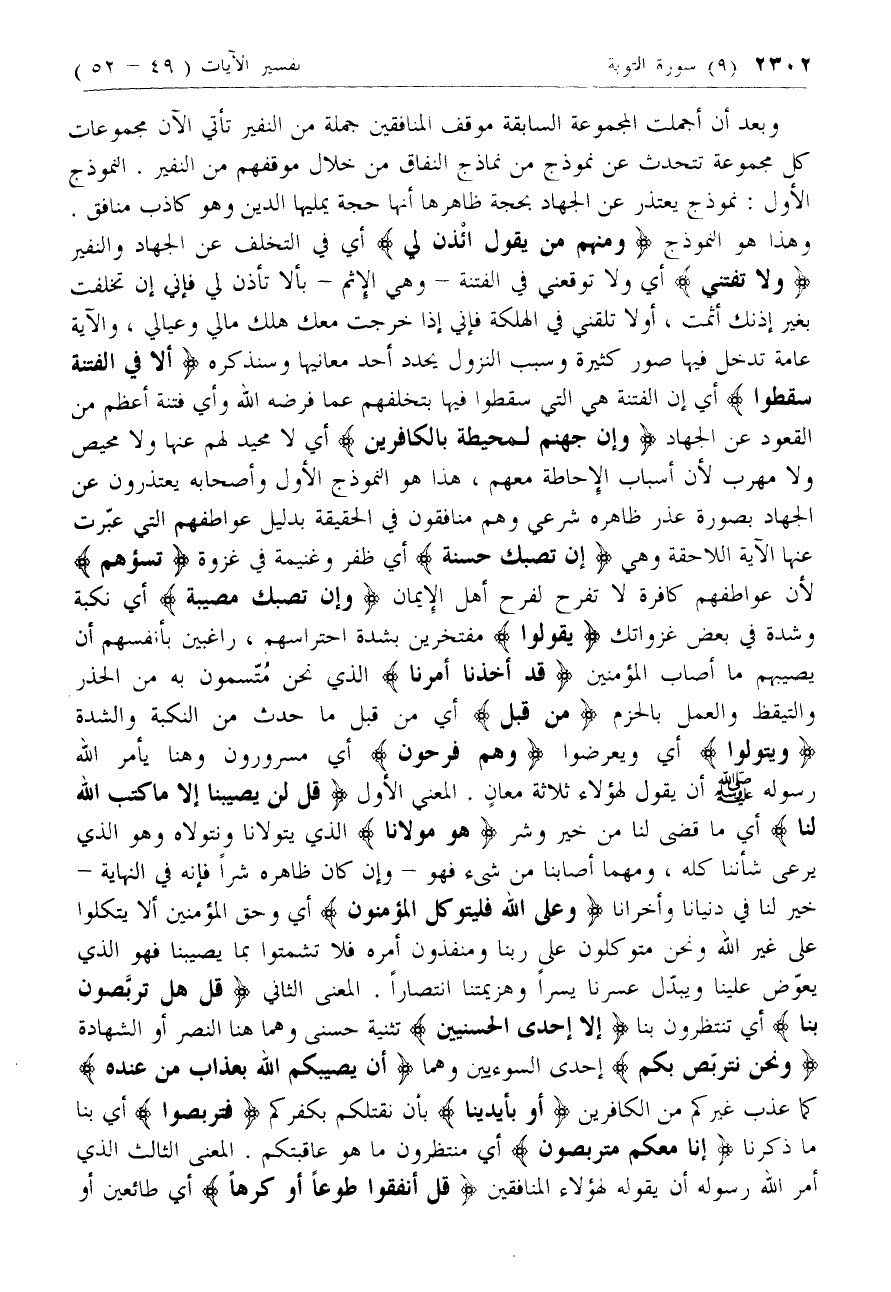 ٢٣٠٢ (٩) سورة التوبة تفسير الآيات ( ٤٩ – ٥٢ )
وبعد أن أجملت المجموعة السابقة موقف المنافقين جملة من النفير تأتي الآن مجموعات
كل مجموعة تتحدث عن نموذج من نماذج النفاق من خلال موقفهم من النفير . النموذج
الأول : نموذج يعتذر عن الجهاد بحجة ظاهرها أنها حجة يمليها الدين وهو كاذب منافق .
وهذا هو النموذج ﴿ ومنهم من يقول ائْذن لي ﴾ أي في التخلف عن الجهاد والنفير
﴿ ولا تفتني ﴾ أي ولا توقعني في الفتنة – وهي الإِثم – بألا تأذن لي فإني إن تخلفت
بغير إذنك أثمت ، أولا تلقني في الهلكة فإني إذا خرجت معك هلك مالي وعيالي ، والآية
عامة تدخل فيها صور كثيرة وسبب النزول يحدد أحد معانيها وسنذكره ﴿ ألا في الفتنة
سقطوا ﴾ أي إن الفتنة هي التي سقطوا فيها بتخلفهم عما فرضه الله وأي فتنة أعظم من
القعود عن الجهاد ﴿ وإن جهنم لـمحيطة بالكافرين ﴾ أي لا محيد لهم عنها ولا محيص
ولا مهرب لأن أسباب الإِحاطة معهم ، هذا هو النموذج الأول وأصحابه يعتذرون عن
الجهاد بصورة عذر ظاهره شرعي وهم منافقون في الحقيقة بدليل عواطفهم التي عبّرت
عنها الآية اللاحقة وهي ﴿ إن تصبك حسنة ﴾ أي ظفر وغنيمة في غزوة ﴿ تسؤهم ﴾
لأن عواطفهم كافرة لا تفرح لفرح أهل الإِيمان ﴿ وإن تصبك مصيبة ﴾ أي نكبة
وشدة في بعض غزواتك ﴿ يقولوا ﴾ مفتخرين بشدة احتراسهم ، راغبين بأنفسهم أن
يصيبهم ما أصاب المؤمنين ﴿ قد أخذنا أمرنا ﴾ الذي نحن مُتّسمون به من الحذر
والتيقظ والعمل بالحزم ﴿ من قبل ﴾ أي من قبل ما حدث من النكبة والشدة
﴿ ويتولوا ﴾ أي ويعرضوا ﴿ وهم فرحون ﴾ أي مسرورون وهنا يأمر الله
رسوله ﷺ أن يقول لهؤلاء ثلاثة معانٍ . المعنى الأول ﴿ قل لن يصيبنا إلا ماكتب الله
لنا ﴾ أي ما قضى لنا من خير وشر ﴿ هو مولانا ﴾ الذي يتولانا ونتولاه وهو الذي
يرعى شأننا كله ، ومهما أصابنا من شيء فهو – وإن كان ظاهره شراً فإنه في النهاية –
خير لنا في دنيانا وأخرانا ﴿ وعلى الله فليتوكل المؤمنون ﴾ أي وحق المؤمنين ألا يتكلوا
على غير الله ونحن متوكلون على ربنا ومنفذون أمره فلا تشمتوا بما يصيبنا فهو الذي
يعوّض علينا ويبدّل عسرنا يسراً وهزيمتنا انتصاراً . المعنى الثاني ﴿ قل هل تربَّصون
بنا ﴾ أي تنتظرون بنا ﴿ إلا إحدى الحسنيين ﴾ تثنية حسنى وهما هنا النصر أو الشهادة
﴿ ونحن نتربّص بكم ﴾ إحدى السوءيين وهما ﴿ أن يصيبكم الله بعذاب من عنده ﴾
كما عذب غيركم من الكافرين ﴿ أو بأيدينا ﴾ بأن نقتلكم بكفركم ﴿ فتربصوا ﴾ أي بنا
ما ذكرنا ﴿ إنا معكم متربصون ﴾ أي منتظرون ما هو عاقبتكم . المعنى الثالث الذي
أمر الله رسوله أن يقوله لهؤلاء المنافقين ﴿ قل أنفقوا طوعاً أو كرهاً ﴾ أي طائعين أو